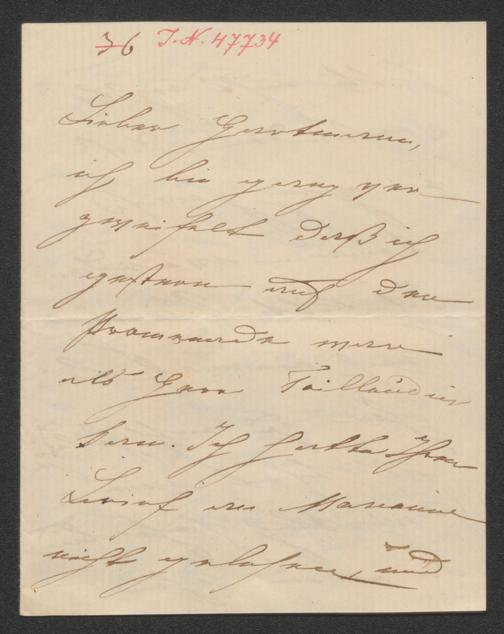 36 I.N. 47734
Lieber Hartmann,
ich bin ganz ver-
zweifelt daß ich
gestern auf der
Promenade
als Herr Taillandier
kam. Ich hatte Ihren
Brief an Marianne
nicht gelesen, und